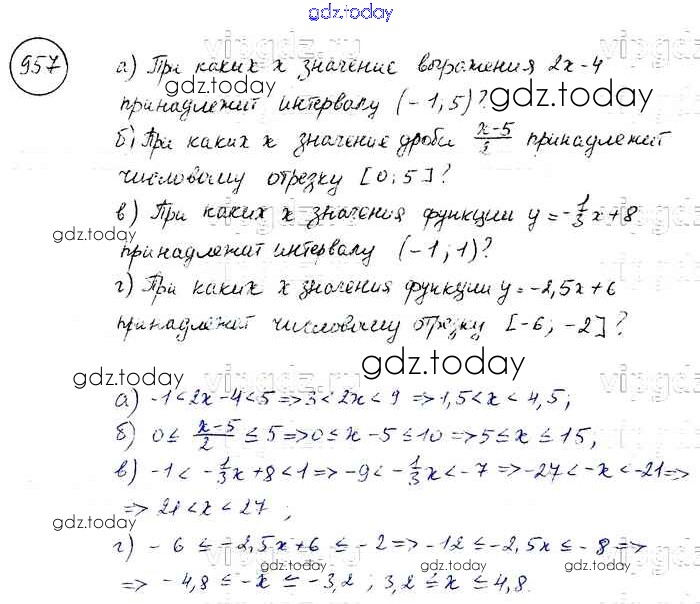 gdz.today
957
а) При каких x значение выражения 2x-4
принадлежит интервалу (-1,5)?
gdz.today
б) При каких x значение дроби x-5/2 принадлежит
числовому отрезку [0;5]?
в) При каких x значения функции y = -1/3x+8
gdz.today
принадлежат интервалу (-1;1)?
г) При каких x значения функции y=-2,5x+6
gdz.today
принадлежат числовому отрезку [-6;-2]?
gdz.today
gdz.today
а) -1<2x-4<5=>3<2x<9=>1,5<x<4,5;
б) 0≤ x-5/2 ≤5=>0≤x-5≤10=>5≤x≤15;
в) -1<-1/3x+8<1=>-9<-1/3x<-7=>-27<-x<-21=>
=> 21<x<27;
gdz.today
г) -6≤-2,5x+6≤-2=>-12≤-2,5x≤-8=>
gdz.today
gdz.today
=> -4,8≤-x≤-3,2; 3,2≤x≤4,8.
gdz.today